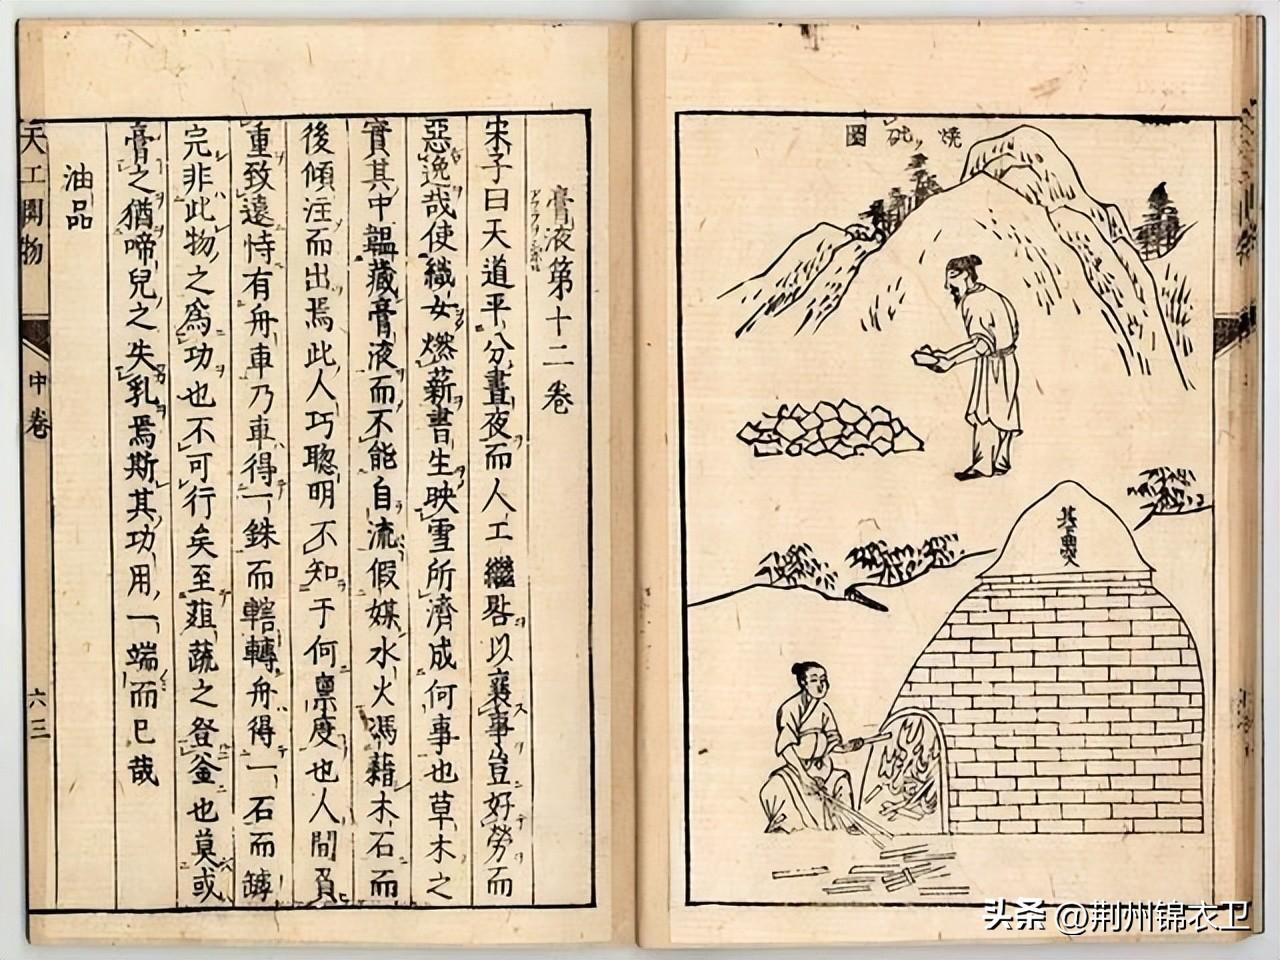 燒砒圖
其下曲突
膏液第十二卷
宋子曰天道平分晝夜而人工繼晷以襄事豈好勞而
惡逸哉使織女燃薪書生映雪所濟成何事也草木之
實其中韞藏膏液而不能自流假媒水火馮藉木石而
後傾注而出焉此人巧聰明不知于何稟度也人間負
重致遠恃有舟車乃車得一銖而轄轉舟得一石而罅
完非此物之為功也不可行矣至菹蔬之登釜也莫或
膏之猶啼兒之失乳焉斯其功用一端而已哉
油品
天工開物
中卷
六三
头条 @荆州锦衣卫